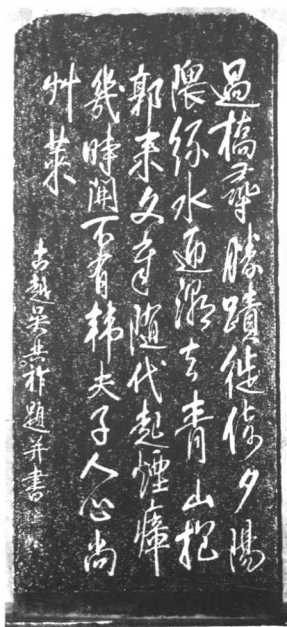 過橋尋勝蹟徙倚夕陽
隈綠水迎潮去青山抱
郭来文章随代起煙瘴
幾時開不有韩夫子人心尚
艸萊
古越吳興祚題并書